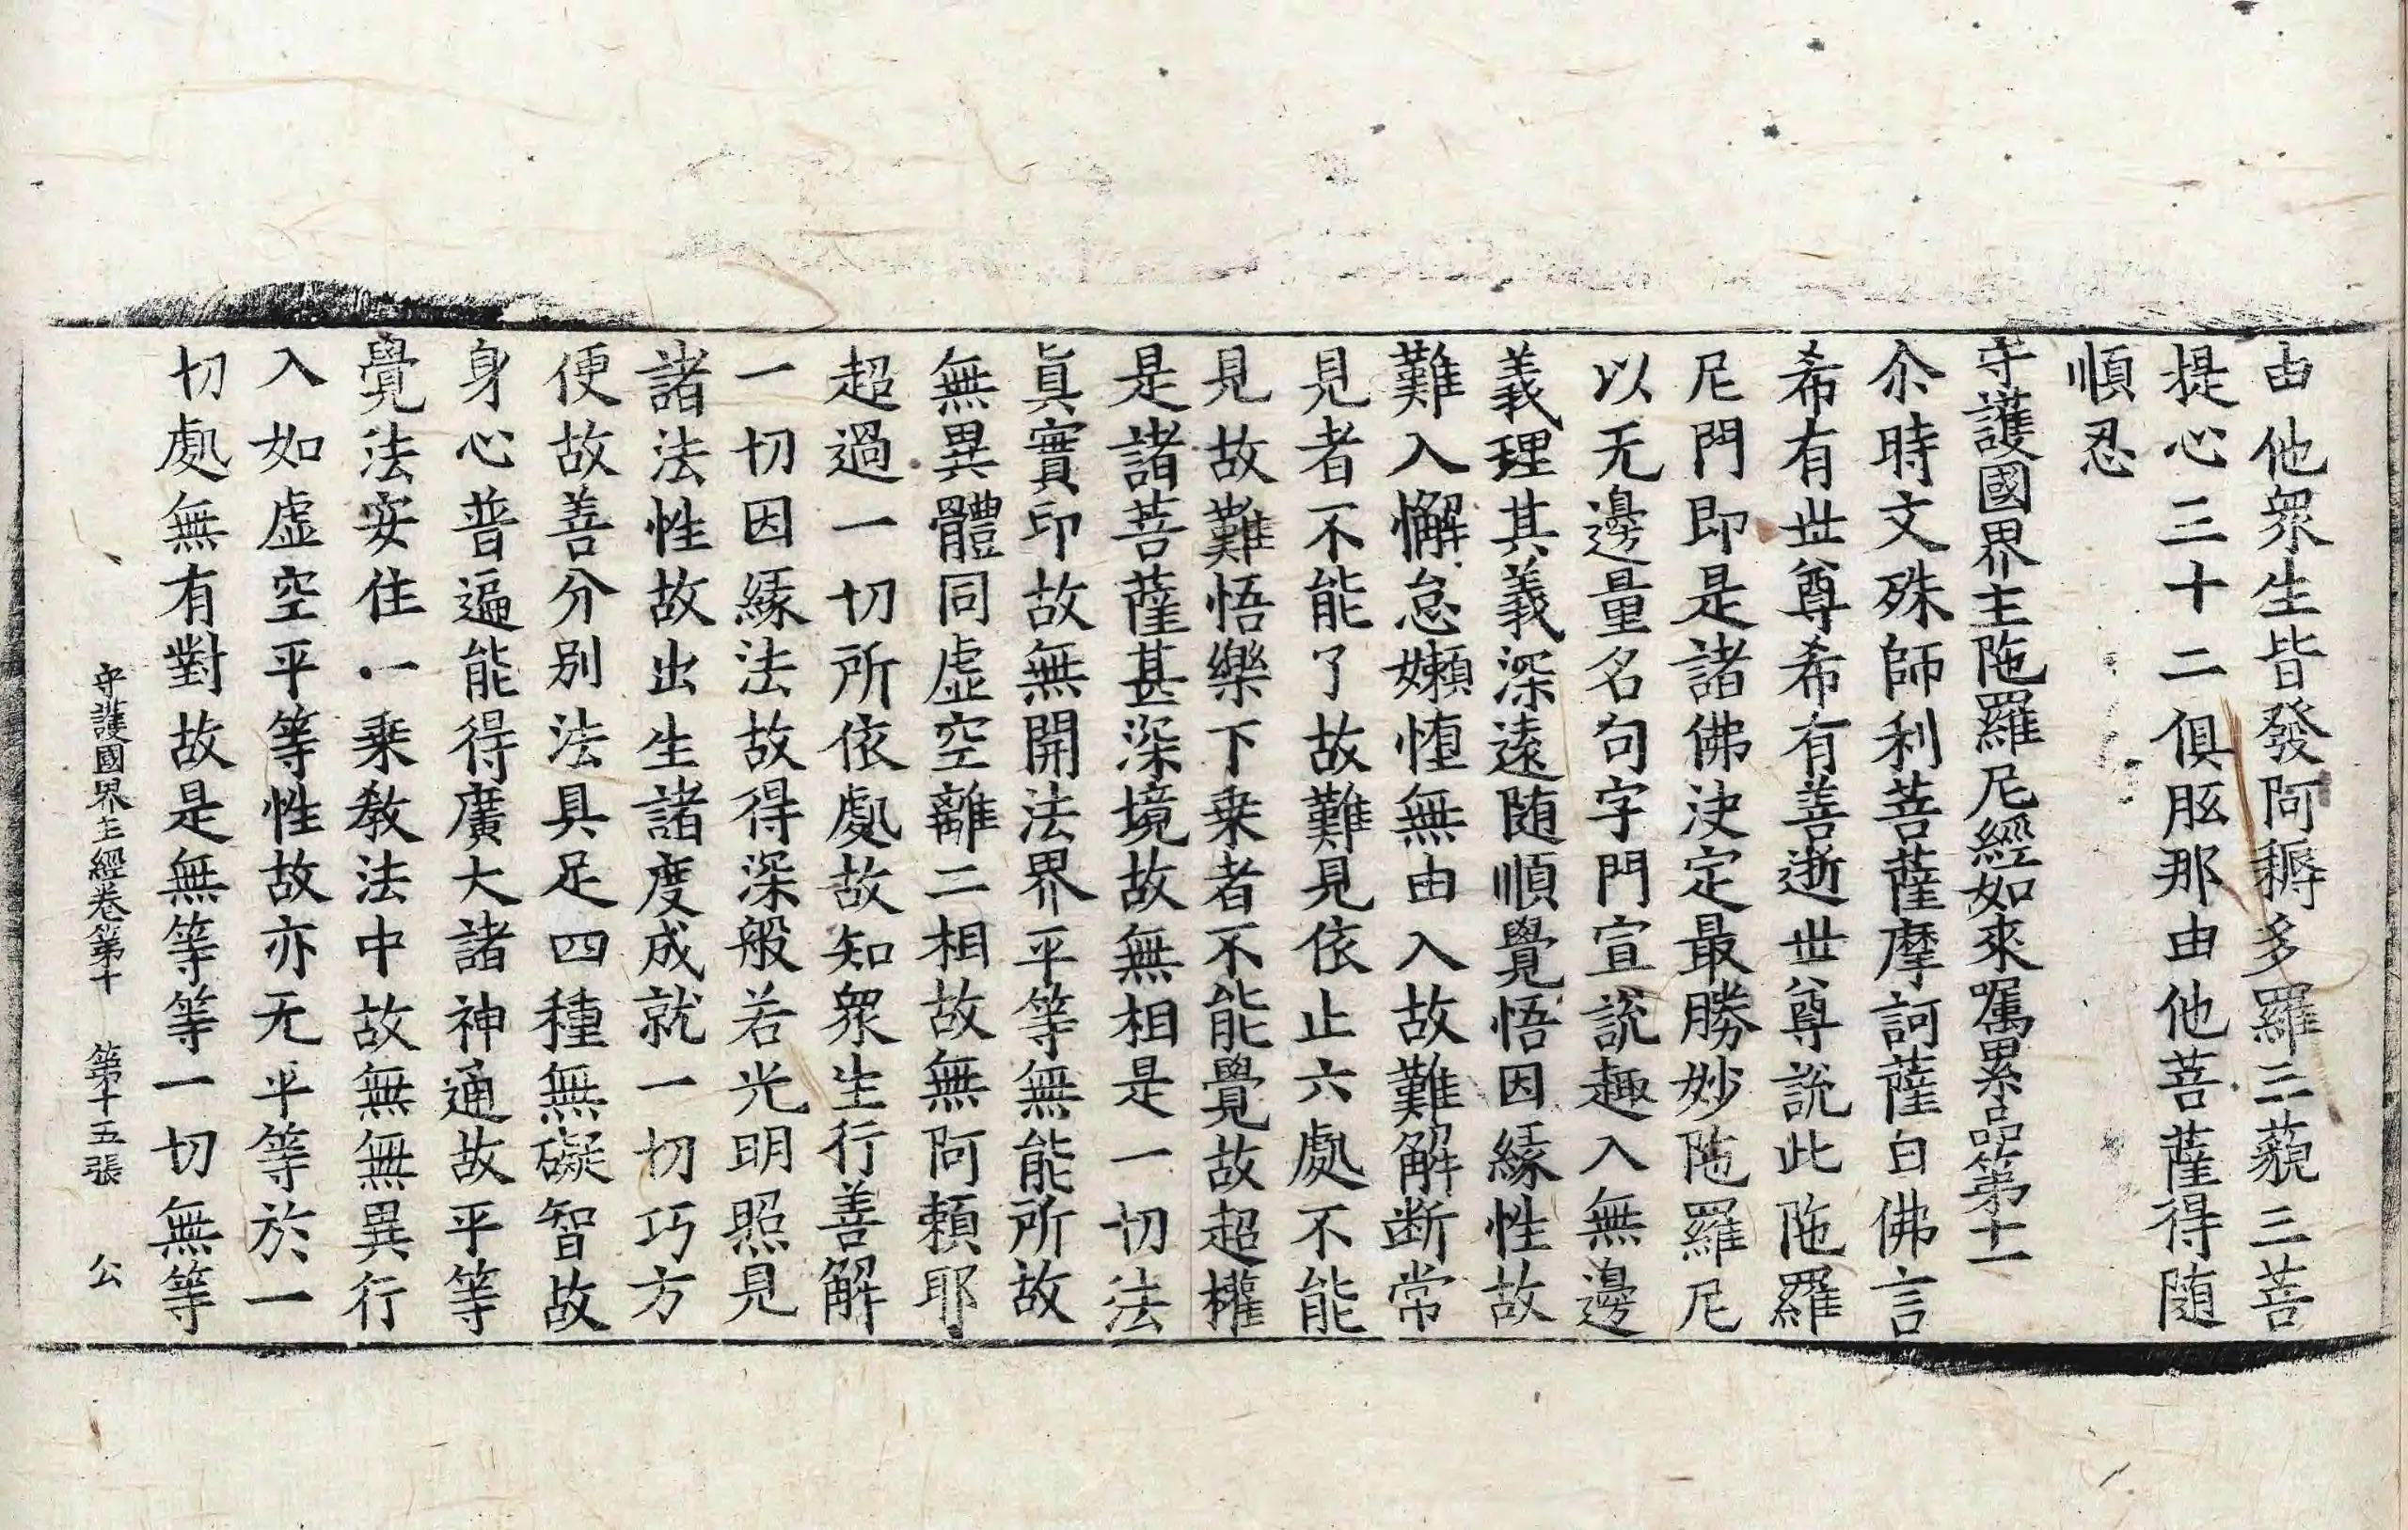 由他衆生皆發阿耨多羅三藐三菩
提心三十二俱胝那由他菩薩得随
順忍
守護國界主陁羅尼經如來囑累品第十一
尒時文殊師利菩薩摩訶薩白佛言
希有世尊希有善逝世尊說此陁羅
尼門即是諸佛決定最勝妙陁羅尼
以无邊量名句字門宣說趣入無邊
義理其義深遠随順覺悟因緣性故
難入懈怠嬾惰無由入故難解断常
見者不能了故難見依止六處不能
見故難悟樂下乗者不能覺故超權
是諸菩薩甚深境故無相是一切法
眞實印故無開法界平等無能所故
無異體同虛空離二相故無阿頼耶
超過一切所依處故知衆生行善解
一切因緣法故得深般若光明照見
諸法性故出生諸度成就一切巧方
便故善分别法具足四種無礙智故
身心普遍能得廣大諸神通故平等
覺法安住一乗敎法中故無無異行
入如虛空平等性故亦无平等於一
切處無有對故是無等等一切無等
守護國界主經卷第十 第十五張 公